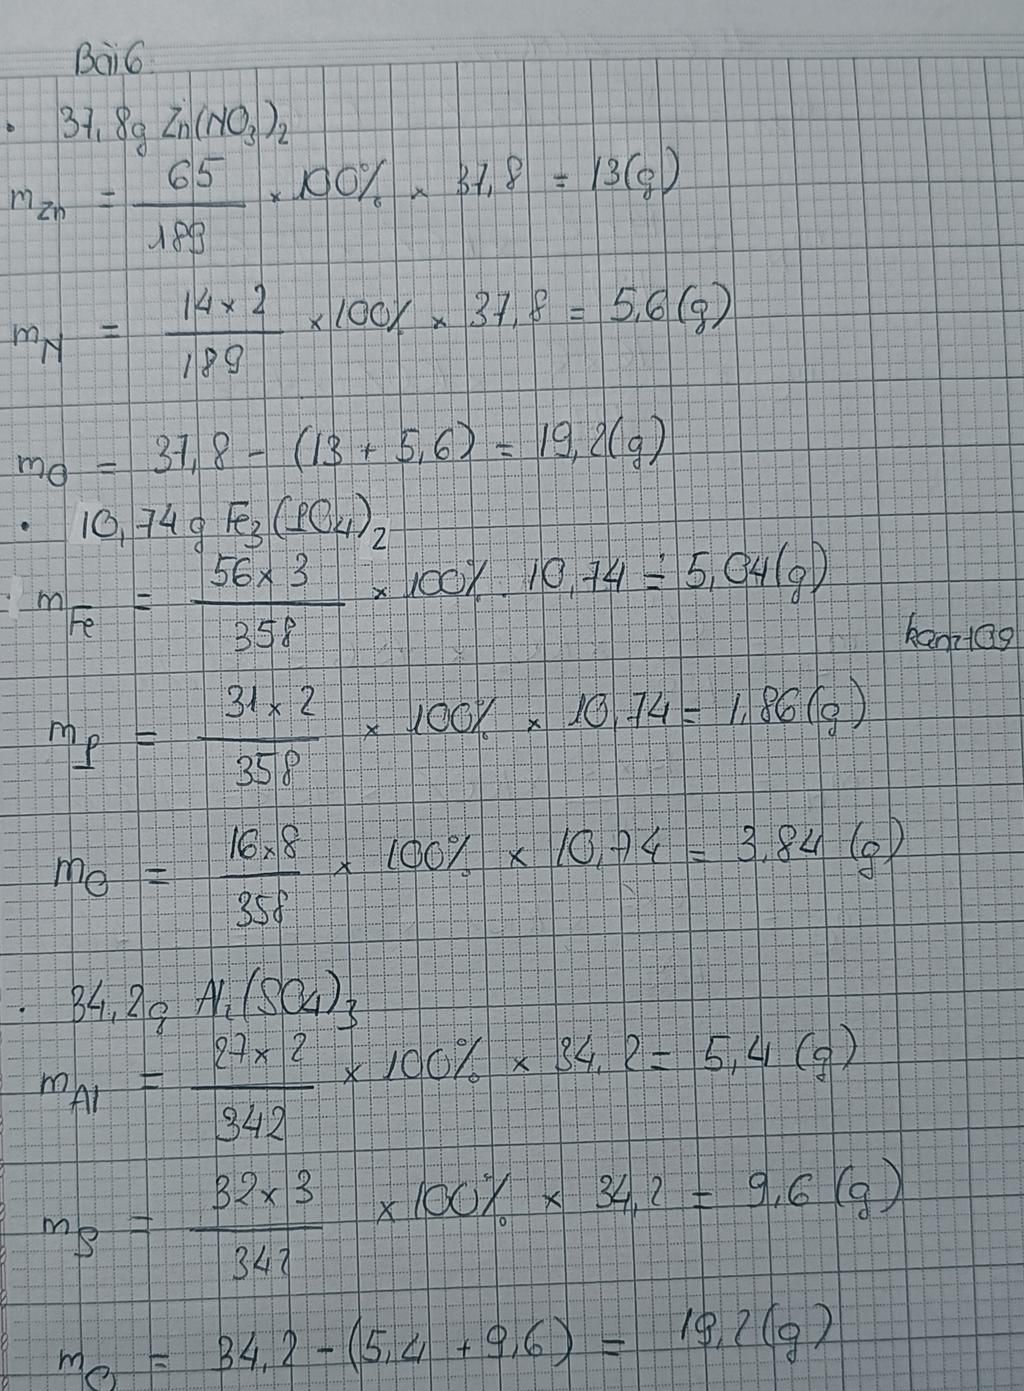 Bài 6
. 37,8g Zn(NO3)2
mZn = 65/189 × 100% × 37,8 = 13(g)
mN = 14×2/189 × 100% × 37,8 = 5,6(g)
mO = 37,8 - (13 + 5,6) = 19,2(g)
. 10,74g Fe3(PO4)2
mFe = 56×3/358 × 100% . 10,74 = 5,04(g)
mP = 31×2/358 × 100% × 10,74 = 1,86(g)
mO = 16×8/358 × 100% × 10,74 = 3,84 (g)
. 34,2g Al2(SO4)3
mAl = 27×2/342 × 100% × 34,2 = 5,4 (g)
mS = 32×3/342 × 100% × 34,2 = 9,6 (g)
mO = 34,2 - (5,4 + 9,6) = 19,2(g)